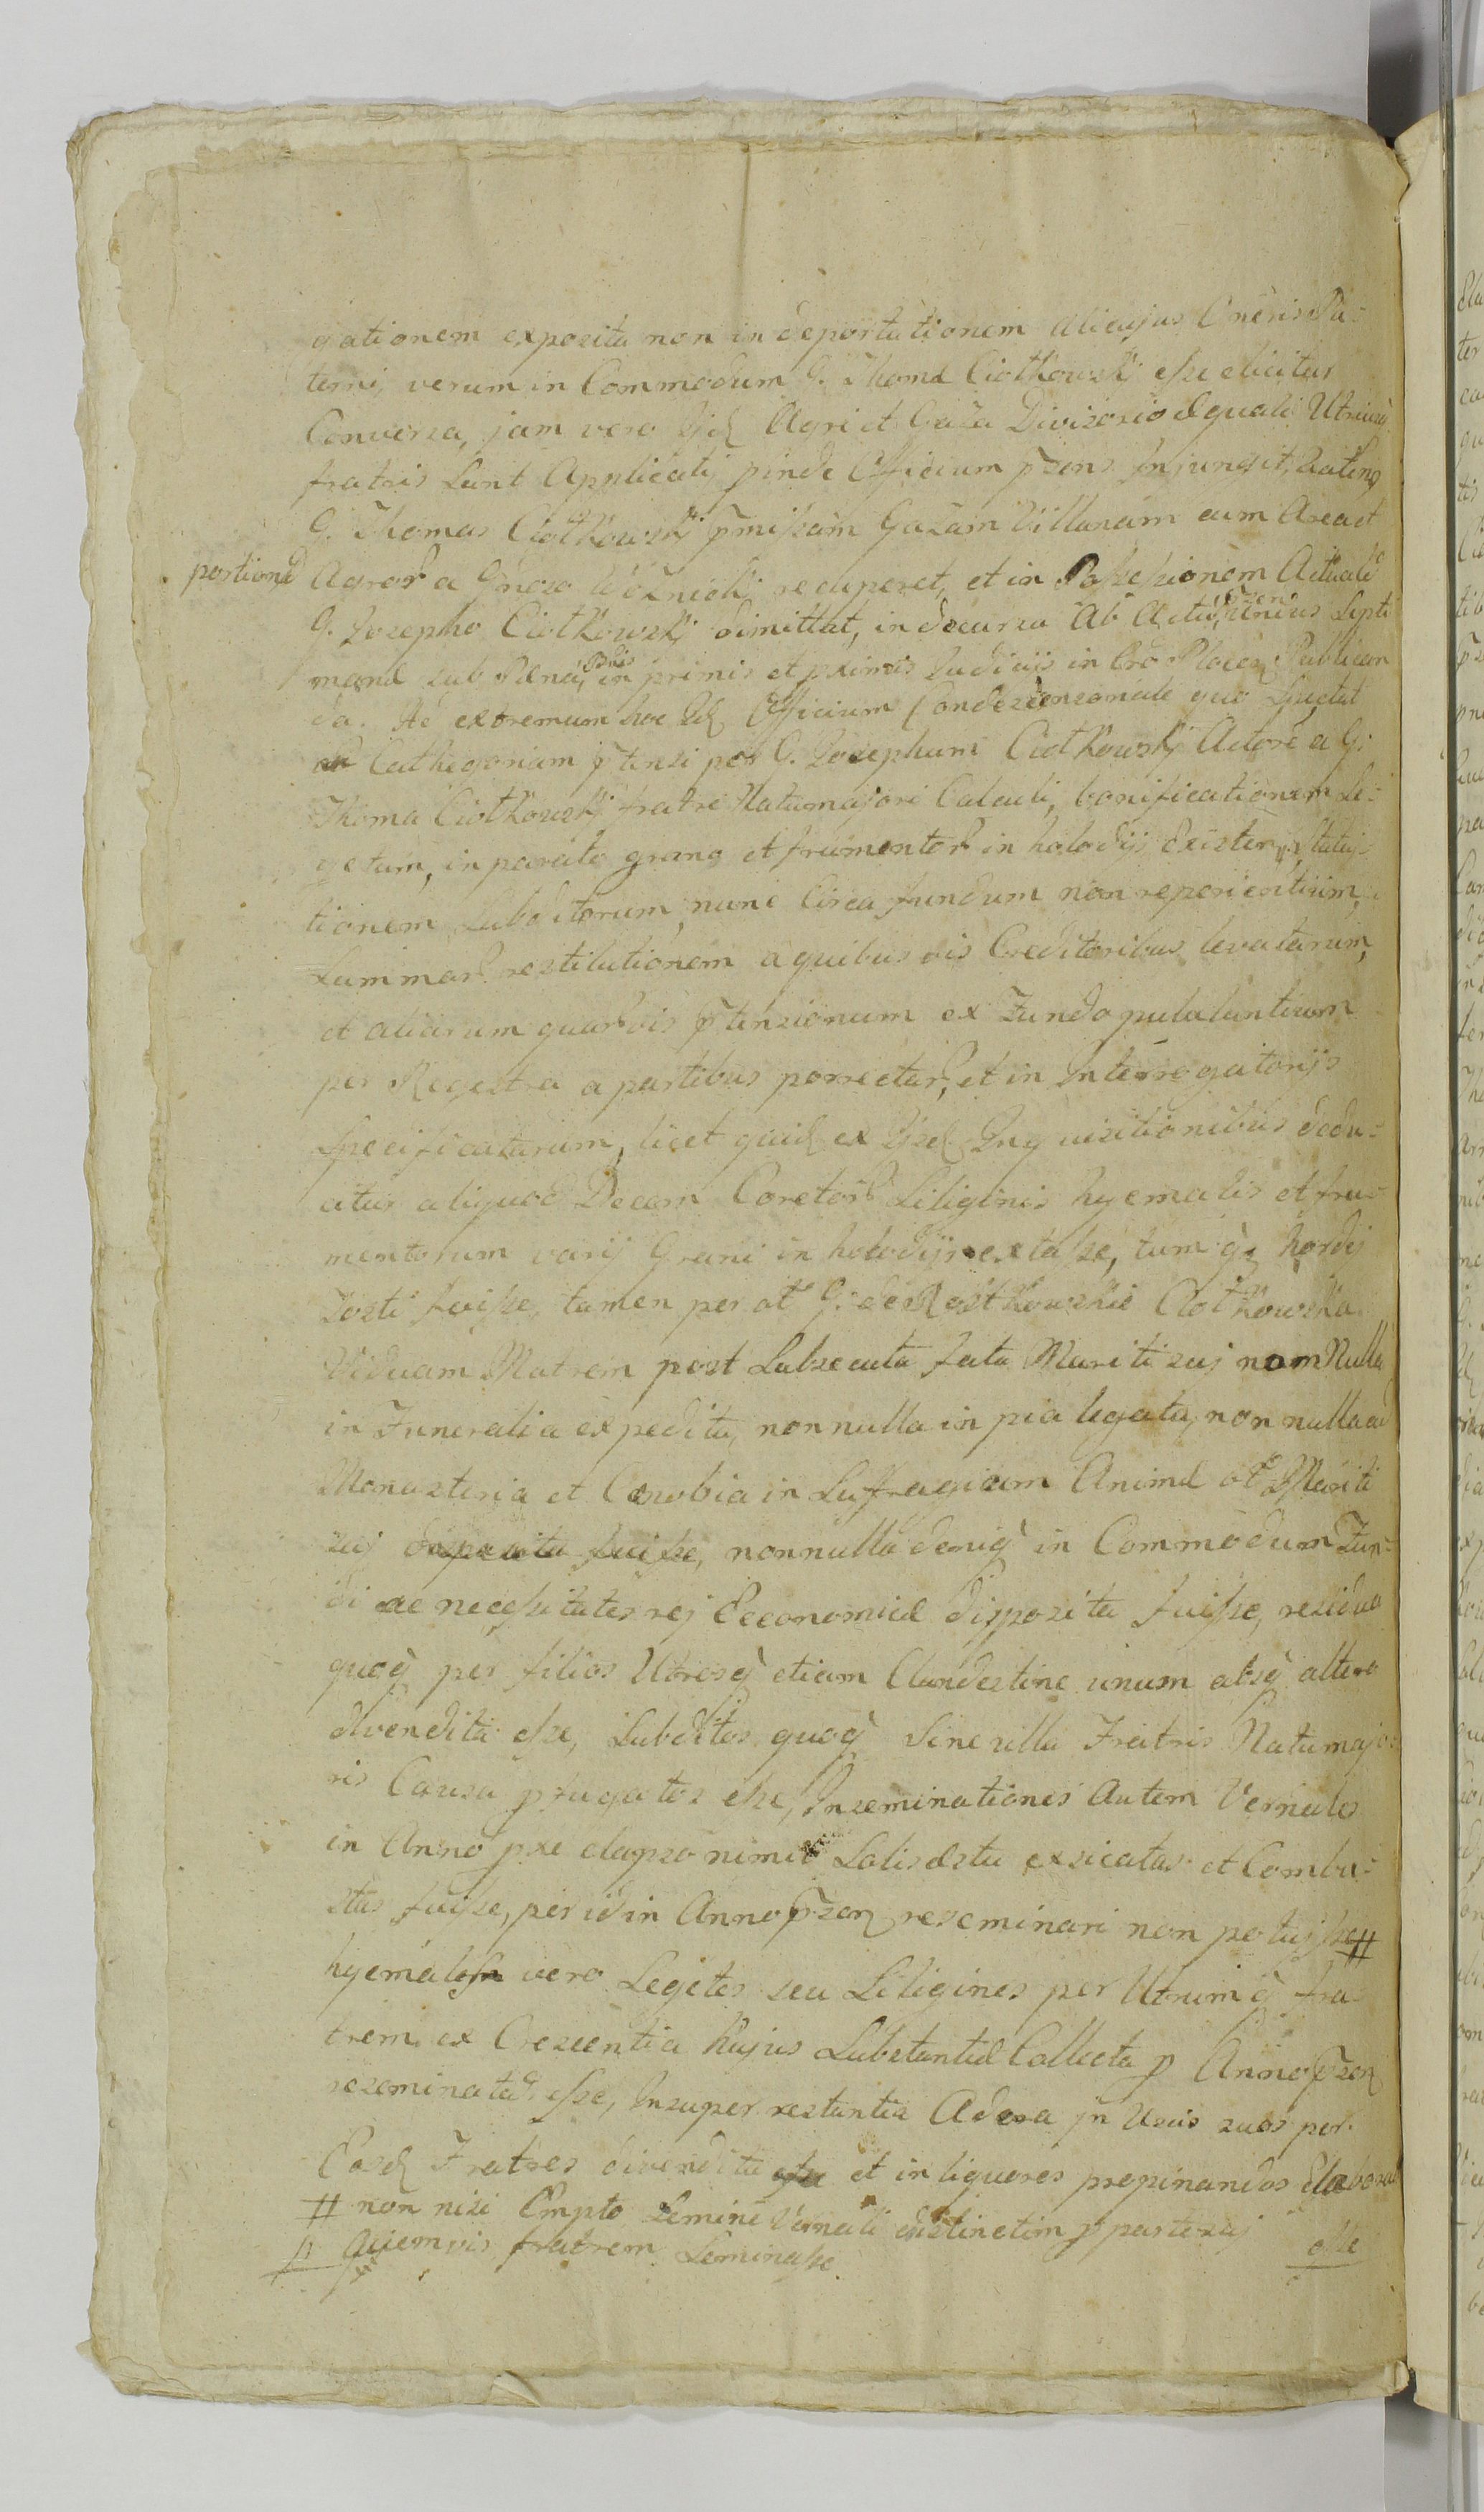 gationem exposita non in deportationem alicujus Oneris Pa-
terni, verum in Commodum G. Thomæ Ciołkowskj esse elicitur
Conversa, jam vero Agri et Gaza Divisorio æquali Utriusq
fratris sunt Applicatj pinde Officium pzens Injungit, Quatinq
G. Thomas Ciołkowskj pmissam Gazam Villanam cum Area et
portione Agror a Gnoso recuperet, et in Possessionem Actuale
G. Josepho Ciołkowskj dimittat, in decursu Ab Actu pzen Unius Septi
manæ sub Pæna, in primis et pximis Judicijs in Cro Publican
da. Ad extremum hoc Id Officium Condescensionale quo Spectat
ad Cathegoriam ptensi per G. Josephum Ciołkowskj Actore a G:
Thoma Ciołkowskj fratre Natumajori Calculi, bonificationem Se-
getum, in parato grano et frumentor in holodijs Existen, Statuj-
tionem Subditorum, nunc Circa fundum non reperientium,
Summar restitutionem a quibusvis Creditoribus levatarum,
et aliarum quarvis ptensionum ex Fundo pululantium
per Regestra a partibus porrectar, et in Interrogatorijs
Specificatarum, licet quid ex Inquisitionibus dedu-
citur aliquod Decem Coretor Siliginis hyemalis et fru-
mentorum varij Grani in holodijs extasse, tum hordej
Fuisse, tamen per ol G: de Rostkowskie Ciołkowska
Viduam Matrem post Subsecuta fata Mariti suj nonNulla
in Funeralia expedita, nonnulla in pia legata, non nulla ad
Monasteria et Cænobia in Suffragium Animæ ol Mariti
suj fuisse, nonnulla deniq in Commodum Fun-
di ac necessitates rej Œconomicæ disposita fuisse, residua
quoq per filios Utrosq etiam Clandestine unum absq altero
divendita esse, Subditos quoq Sine ulla Fratris Natumajo-
ris Causa pfugatos esse, Inseminationes Autem Vernales
in Anno pxe elapso nimio Solis æstu exsicatas et Combu-
stas fuisse, per id in Anno pzen reseminari non potuisse #
hyemales vero Segetes seu Siligines per Utrumq fra-
trem ex Crescentia hujus Substantiæ Collecta p Anno pzen
seminatas esse, Insuper restantia Adora in Usus suos per
Eosd Fratres divendita esse et in liquores propinandos Elaborat
# non nisi Empto Semine Vernali distinctim p parte suj
# Quemvis fratrem Seminasse.
esse